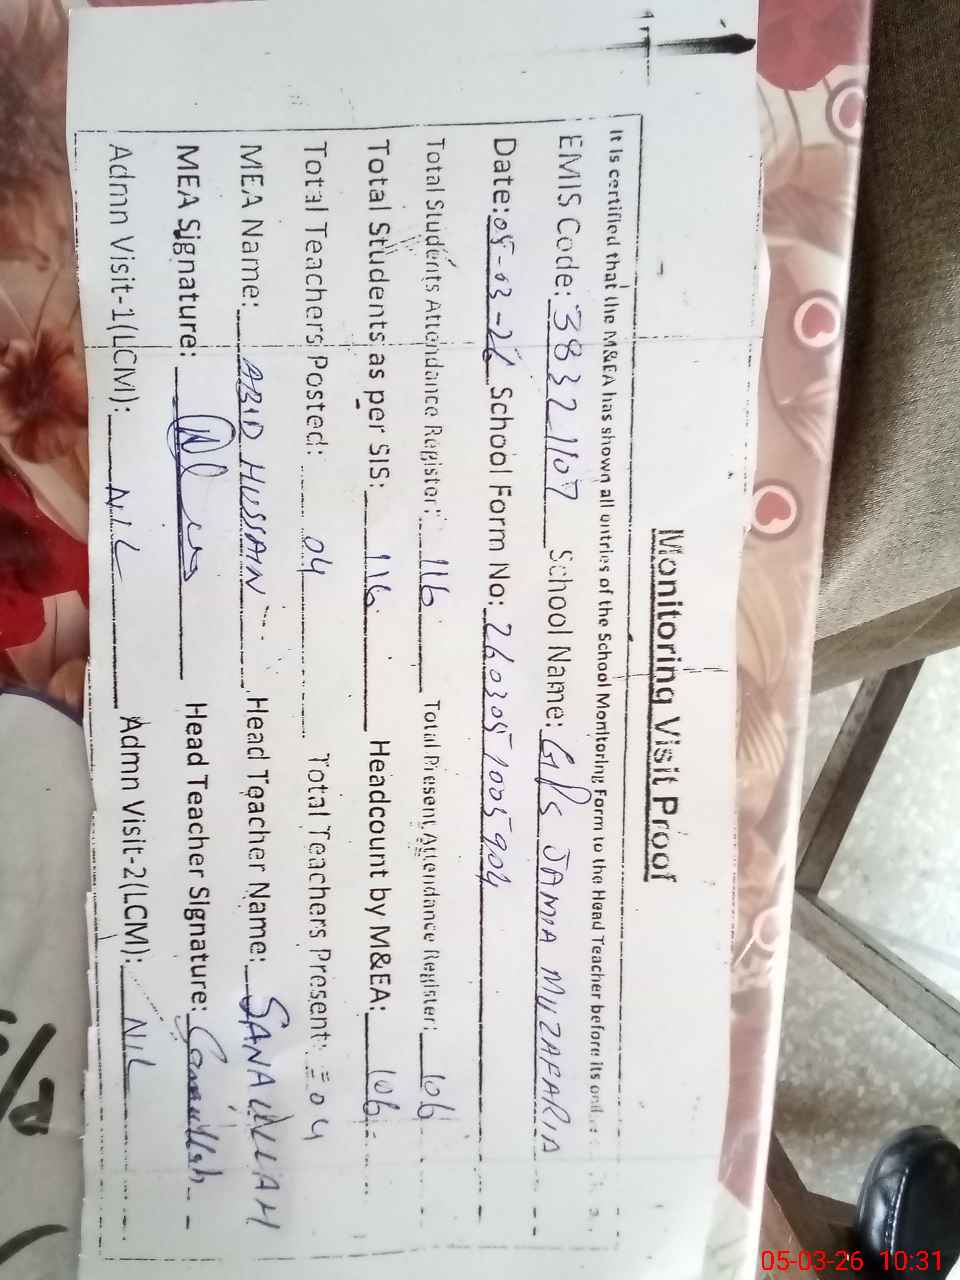 Monitoring Visit Proof
It is certified that the M&EA has shown all entries of the School Monitoring Form to the Head Teacher before its
EMIS Code: 38321107 School Name: G/PS JAMIA MUZAFARIA
Date: 05-03-26 School Form No: 2603051005904
Total Students Attendance Register: 116 Total Present Attendance Register: 106
Total Students as per SIS: 116 Headcount by M&EA: 106
Total Teachers Posted: 04 Total Teachers Present: = 04
MEA Name: ABID HUSSAIN Head Teacher Name: SANA ULLAH
MEA Signature: Head Teacher Signature: Sanaullah
Admn Visit-1(LCM): NIL Admn Visit-2(LCM): NIL
05-03-26 10:31